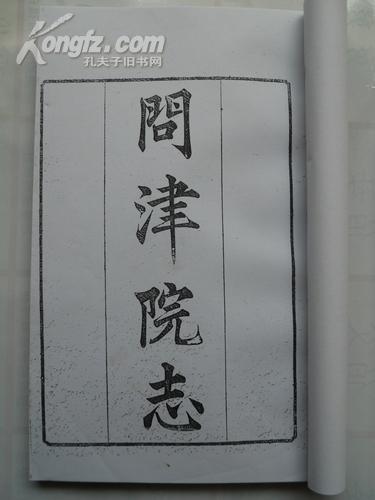 Kongfz.com
孔夫子旧书网
問津院志